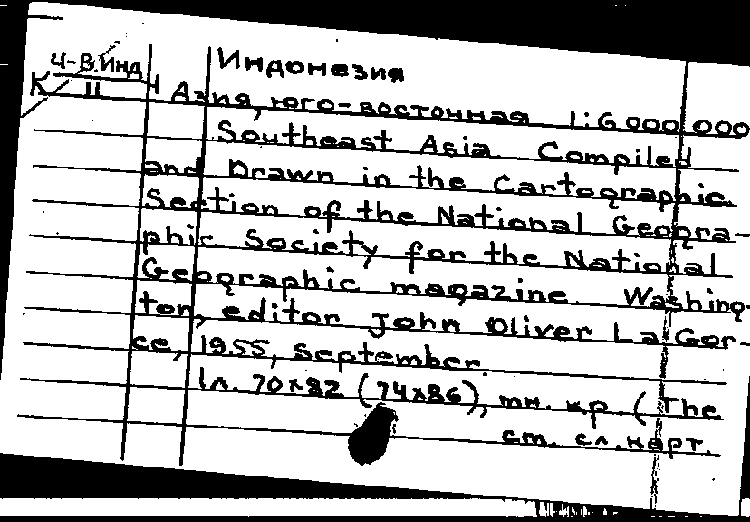 Ч-В.Инд
К 11
Индонезия
Азия, юго-восточная 1:6.000.000
Southeast Asia. Compiled
and Drawn in the Cartographic
Section of the National Geogra-
phic Society for the National
Geographic magazine. Washing-
ton, editor John Oliver La Gor-
ce, 1955, September.
1л. 70×82 (74×86), мн. кр. (The
см. сл. карт.